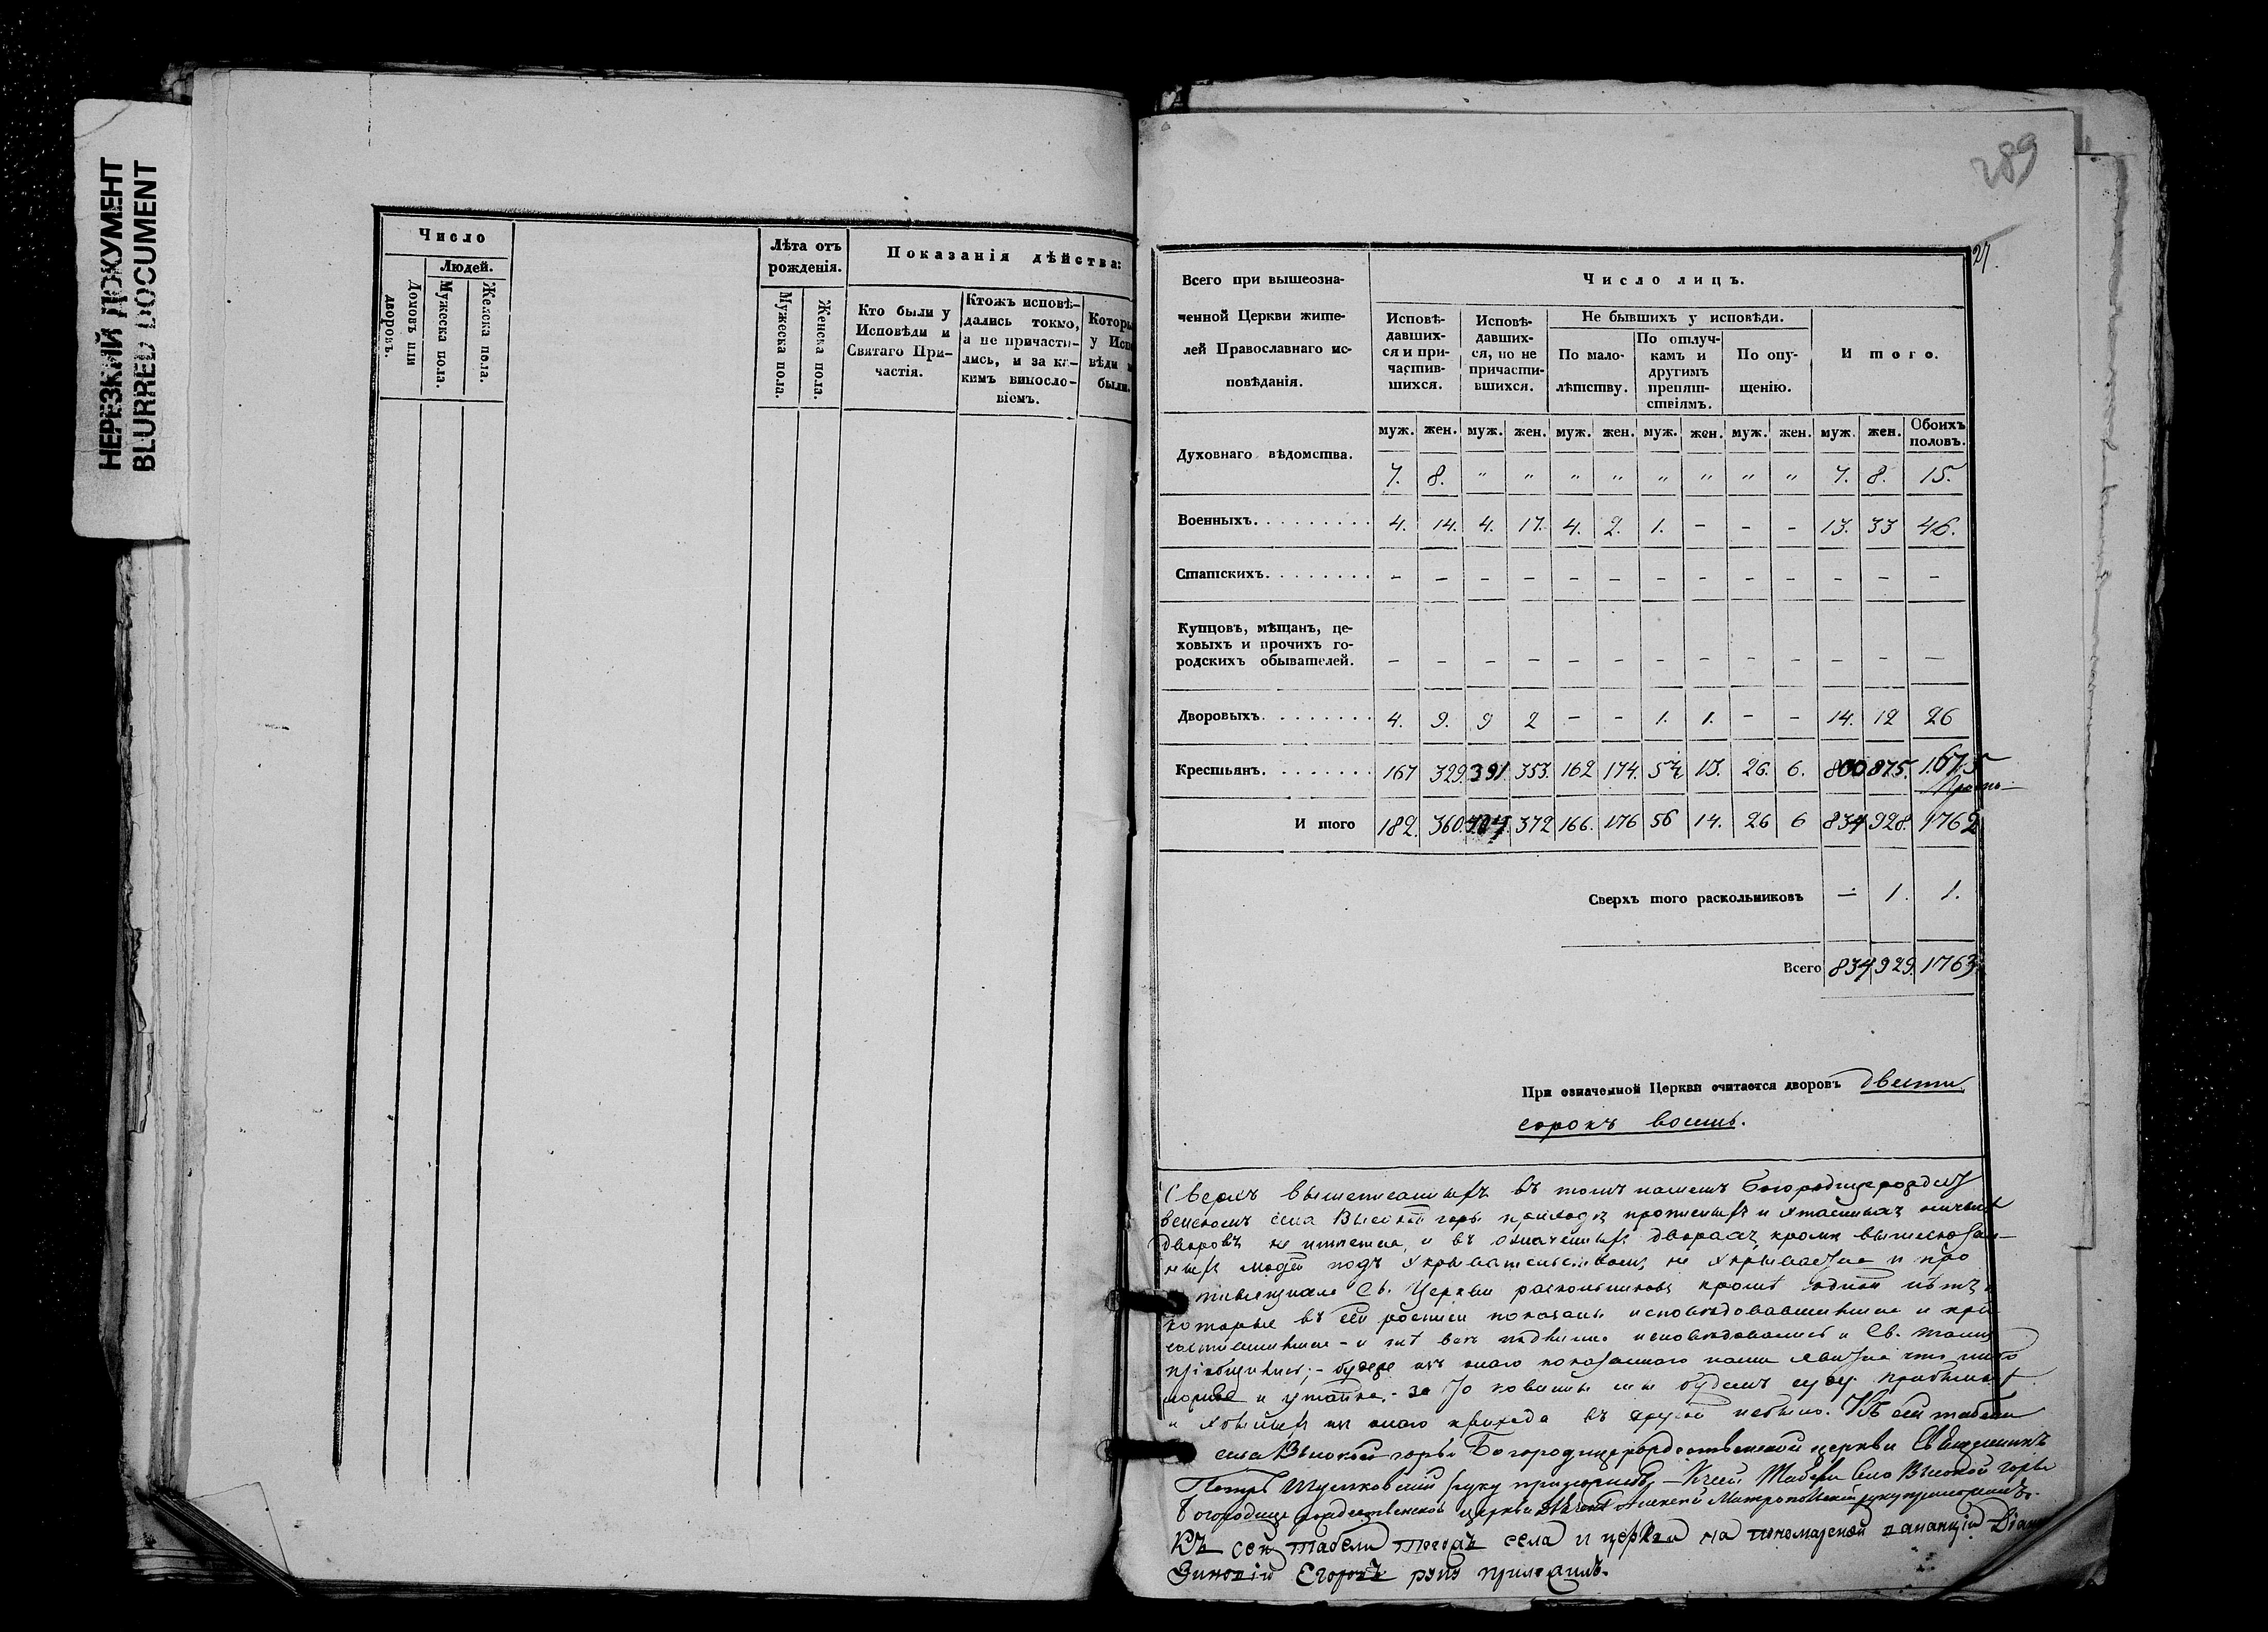 НЕРЕЗКИЙ ДОКУМЕНТ
BLURRED DOCUMENT
Число
Людей.
Домовъ или дворовъ.
Мужеска пола.
Женска пола.
Лѣта отъ
рожденія.
Мужеска пола.
Женска пола.
Показанія дѣйства:
Кто были у
Исповѣди и
Святаго При-
частія.
Ктожъ исповѣ-
дались токмо,
а не причасти-
лись, и за ка-
кимъ винословіемъ.
Которы
у Испо
вѣди н
были.
289
27.
Всего при вышеозна-
ченной Церкви жите-
лей Православнаго ис-
повѣданія.
Число лицъ.
Исповѣ-
давших-
ся и при-
частив-
шихся.
Исповѣ-
давших-
ся, но не
причасти-
вшихся.
Не бывшихъ у исповѣди.
По мало-
лѣтству.
По отлуч-
камъ и
другимъ
препят-
ствіямъ.
По опу-
щенію.
И того.
муж. жен. муж. жен. муж. жен. муж. жен. муж. жен. муж. жен. Обоихъ половъ.
Духовнаго вѣдомства. 7. 8. " " " " " " " " 7. 8. 15.
Военныхъ. 4. 14. 4. 17. 4. 2. 1. - - - 13. 33 46.
Статскихъ. - - - - - - - - - - - - -
Купцовъ, мѣщанъ, це-
ховыхъ и прочихъ го-
родскихъ обывателей. - - - - - - - - - - - - -
Дворовыхъ. 4. 9. 9 2 - - 1. 1. - - 14. 12 26
Крестьянъ. 167 329. 391. 353. 162 174. 54 13. 26. 6. 800 875. 1.675
И того 182. 360. 407. 372 166. 176 56 14. 26 6 834 928. 1762
Сверхъ того раскольниковъ — 1. 1.
Всего 834 929. 1763.
При означенной Церкви считается дворовъ двести
сорокъ восемь.
Сверхъ вышеписанныхъ въ томъ нашемъ Богородицерождест
венскомъ села Высокой горы приходѣ
дворовъ не имѣется, и въ означенныхъ дворахъ, кромѣ вышепоказан-
ныхъ людей подъ укрывательствомъ не укрывается и про
Св. Церкви раскольниковъ кромѣ одной нѣтъ
которые въ сей росписи показаны исповѣдовавшимися и при
частившимися - и тѣ всѣ исповѣдовались и Св. Таинъ
пріобщились; - будере изъ онаго показаннаго нами явится что либо
и утайка, - за то повинны мы будемъ суду
и изъ онаго прихода въ другой небыло. Къ сей табели
села Высокой горы Богородицерождественской церкви Священникъ
Петръ руку приложилъ, - Къ сей Табели Села Высокой горы
Богородице рождественской церкви Алексей Митропольскій руку приложилъ.
Къ сей табели тогожъ села и церкви на пономарской ваканціи
Зиновій Егоровъ руку приложилъ.